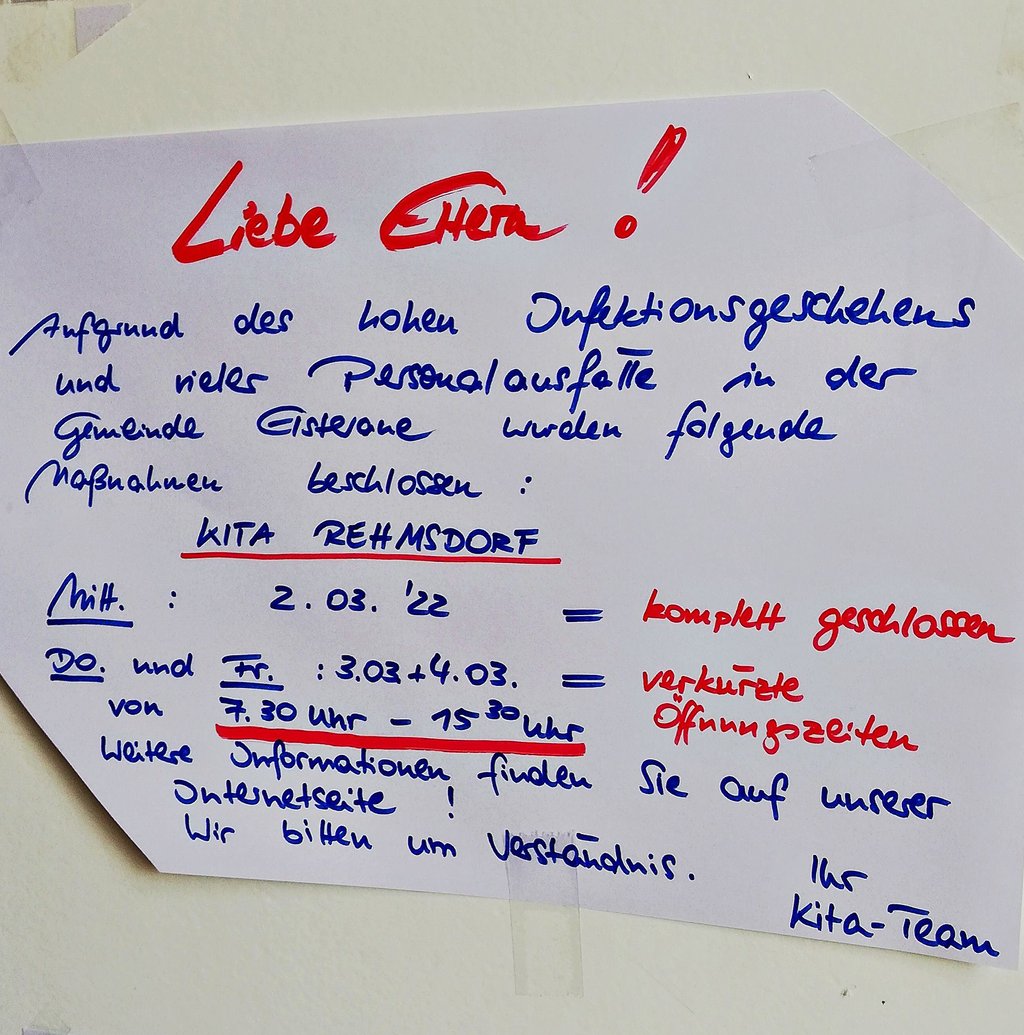 Liebe Eltern !
Aufgrund des hohen Infektionsgeschehens
und vieler Personalausfälle in der
Gemeinde Elsteraue wurden folgende
Maßnahmen beschlossen :
KITA REHMSDORF
Mitt. : 2.03.'22 = komplett geschlossen
Do. und Fr. : 3.03+4.03. = verkürzte
von 7.30 Uhr - 15 30 Uhr Öffnungszeiten
Weitere Informationen finden Sie auf unserer
Internetseite !
Wir bitten um Verständnis.
Ihr
Kita-Team